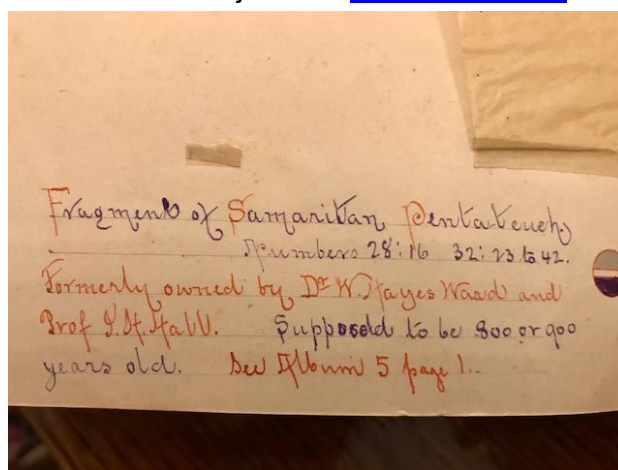 Fragment of Samaritan Pentateuch
Numbers 28:16 32:23 to 42.
Formerly owned by Dr W. Hayes Ward and
Prof I. H. Hall. Supposed to be 800 or 900
years old. See Album 5 page 1.